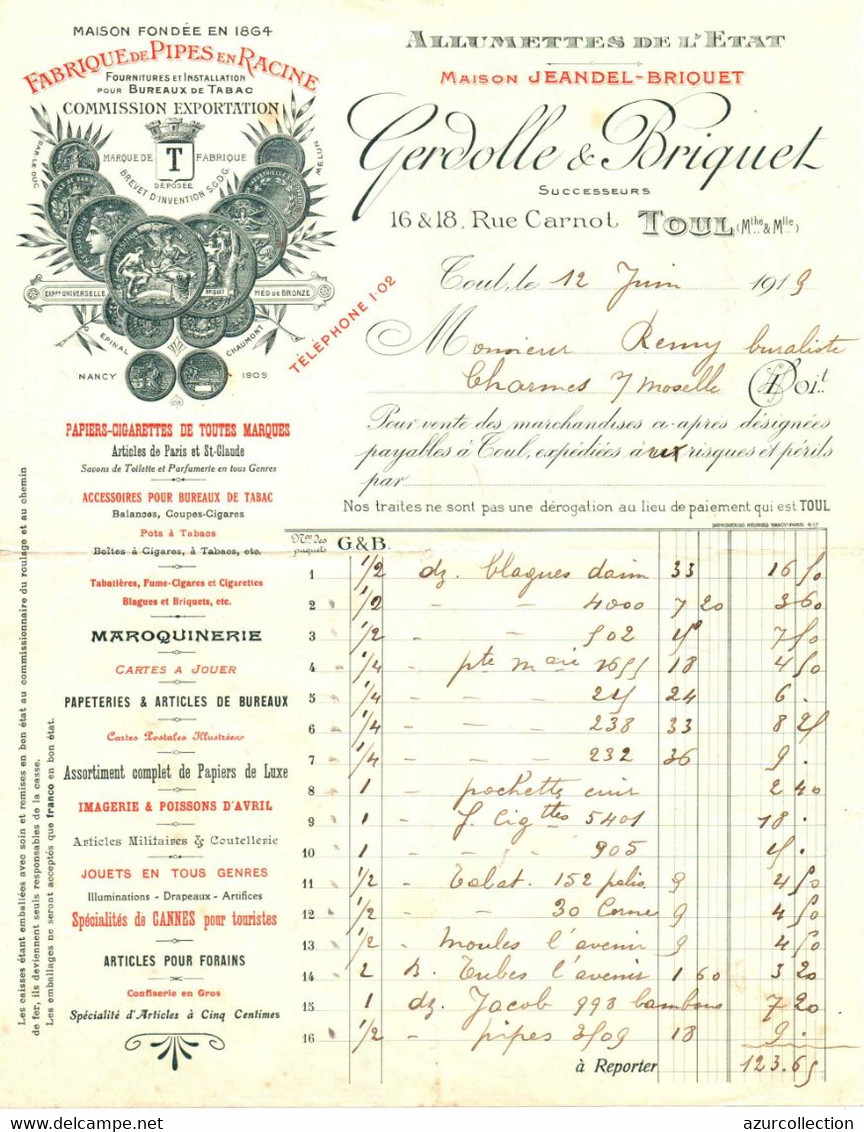 MAISON FONDÉE EN 1864
FABRIQUE DE PIPES EN RACINE
FOURNITURES ET INSTALLATION
POUR BUREAUX DE TABAC
COMMISSION EXPORTATION
BAR-LE-DUC
MELUN
MARQUE DE T FABRIQUE
DÉPOSÉE
BREVET D'INVENTION S.G.D.G.
EXPON UNIVERSELLE
MED. DE BRONZE
EPINAL
CHAUMONT
NANCY 1909
TÉLÉPHONE 1-02
ALLUMETTES DE L'ETAT
MAISON JEANDEL-BRIQUET
Gerdolle & Briquet
SUCCESSEURS
16 & 18, Rue Carnot TOUL (Mthe & Mlle)
Toul, le 12 Juin 1919
Monsieur Remy buraliste
Charmes s/ moselle Doit
Pour vente des marchandises ci-après désignées
payables à Toul, expédiées à risques et périls
par
Nos traites ne sont pas une dérogation au lieu de paiement qui est TOUL
IMPRIMERIES RÉUNIES NANCY-PARIS 4-17
PAPIERS-CIGARETTES DE TOUTES MARQUES
Articles de Paris et St-Claude
Savons de Toilette et Parfumerie en tous Genres
ACCESSOIRES POUR BUREAUX DE TABAC
Balances, Coupes-Cigares
Pots à Tabacs
Boîtes à Cigares, à Tabacs, etc.
Tabatières, Fume-Cigares et Cigarettes
Blagues et Briquets, etc.
MAROQUINERIE
CARTES A JOUER
PAPETERIES & ARTICLES DE BUREAUX
Cartes Postales Illustrées
Assortiment complet de Papiers de Luxe
IMAGERIE & POISSONS D'AVRIL
Articles Militaires & Coutellerie
JOUETS EN TOUS GENRES
Illuminations - Drapeaux - Artifices
Spécialités de CANNES pour touristes
ARTICLES POUR FORAINS
Confiserie en Gros
Spécialité d'Articles à Cinq Centimes
Les caisses étant emballées avec soin et remises en bon état au commissionnaire du roulage et au chemin
de fer, ils deviennent seuls responsables de la casse.
Les emballages ne seront acceptés que franco en bon état.
Nos des paquets G. & B.
1 1/2 dz. blagues daim 33 16 50
2 1/2 - - 4000 7 20 3 60
3 1/2 - - 502 15 7 50
4 1/4 - pte 2655 18 4 50
5 1/4 - - 215 24 6 .
6 1/4 - - 238 33 8 25
7 1/4 - - 232 36 9 .
8 1 pochette cuir 2 40
9 1 - f. Cigttes 5401 18 .
10 1 - - 905 15 .
11 1/2 - Tabat. 152 9 4 50
12 1/2 - - 30 Corne 9 4 50
13 1/2 - moules l'avenir 9 4 50
14 2 B. Tubes l'avenir 1 60 3 20
15 1 dz. Jacob 998 bambous 7 20
16 1/2 - pipes 3509 18 9 .
à Reporter 123.65
Delcampe.net
azurcollection